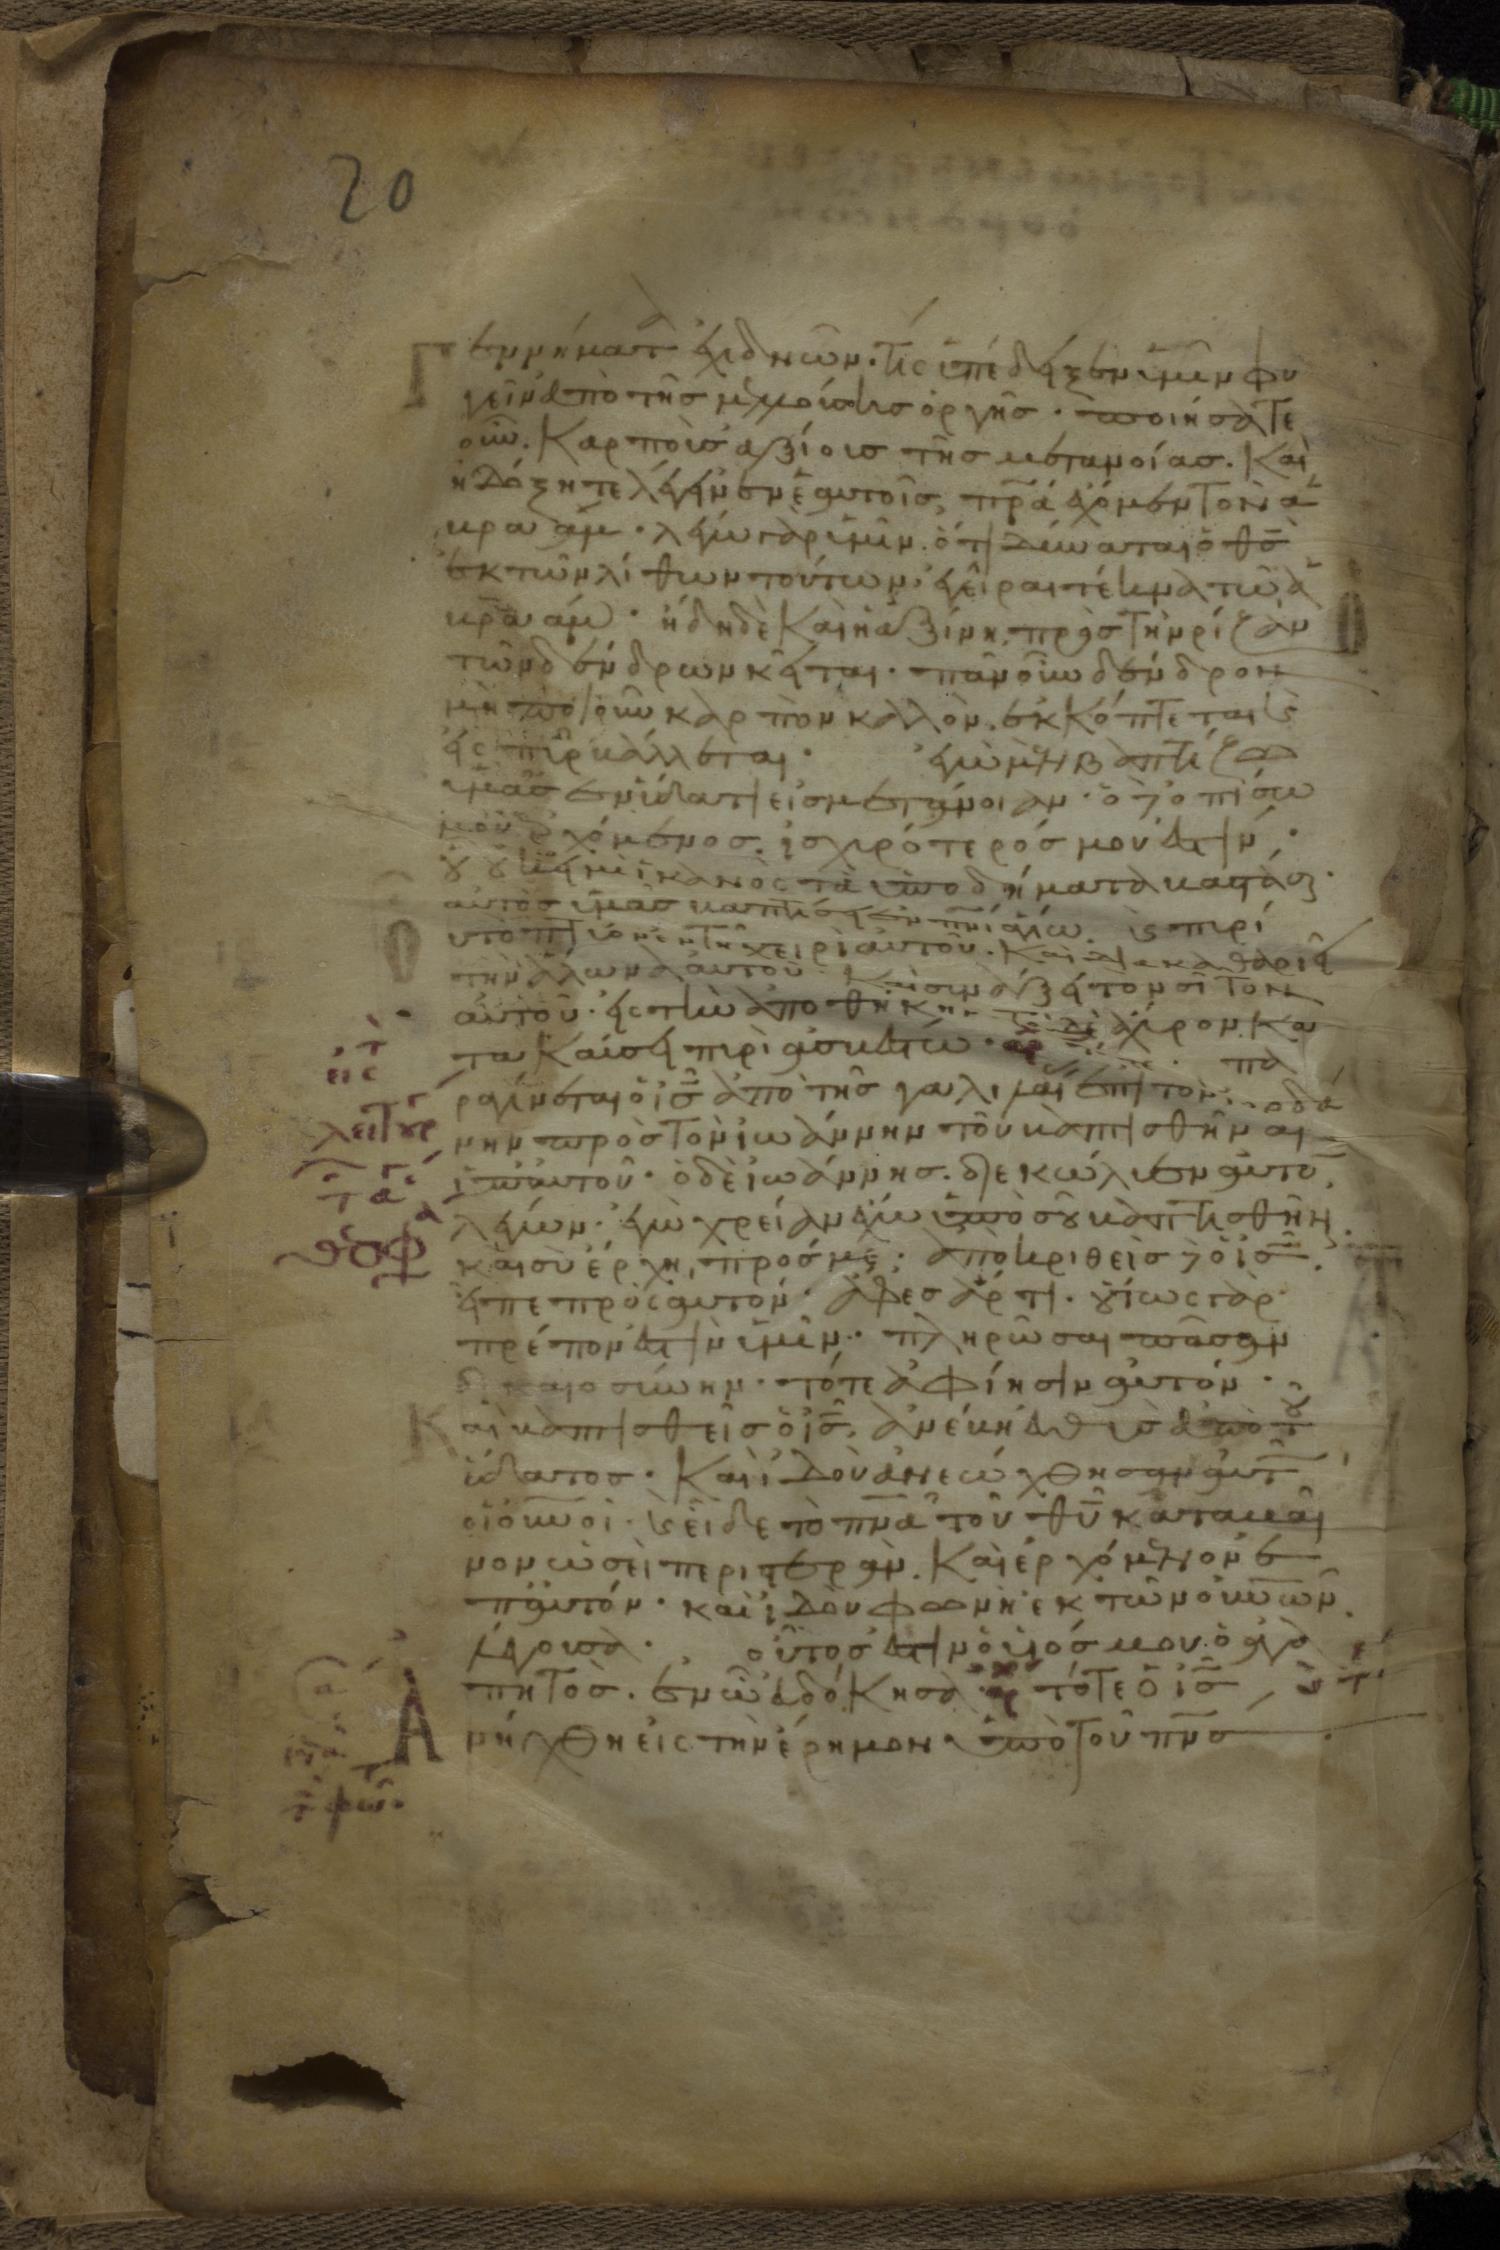 20
Γεννήματα ἐχιδνῶν· τίς ὑπέδειξεν ὑμῖν φυ
γεῖν ἀπὸ τῆς μελλούσης ὀργῆς· ποιήσατε
οὖν καρποὺς ἀξίους τῆς μετανοίας. Καὶ
μὴ δόξητε λέγειν ἐν ἑαυτοῖς, πρ̅α ἔχομεν τὸν ἀ
βραάμ· λέγω γὰρ ὑμῖν. ὅτι δύναται ὁ θ̅ς
ἐκ τῶν λίθων τούτων, ἐγεῖραι τέκνα τῶ ἀ
βραάμ· ἤδη δὲ καὶ ἡ ἀξίνη, πρὸς τὴν ρίζαν
τῶν δένδρων κεῖται· πᾶν οὖν δένδρον
μὴ ποιοῦν καρπὸν καλλὸν, ἐκκόπτεται κ
εἰς πῦρ βάλλεται· ἐγὼ μὲν βαπτίζω
ὑμᾶς ἐν ὕδατι εἰς μετάνοιαν· ὁ δὲ ὀπίσω
μου ἐρχόμενος, ἰσχυρότερός μου ἐστὶν·
οὗ οὐκ εἰμὶ ἱκανὸς τὰ ὑποδήματα βαστάσαι·
αὐτὸς ὑμᾶς βαπτίσει ἐν πν̅ι ἁγίω κ πυρί
οὗ τὸ πτύον ἐν τῇ χειρὶ αὐτοῦ· Καὶ διακαθαριεῖ
τὴν ἅλωνα αὐτοῦ· Καὶ συνάξει τὸν σῖτον
αὐτοῦ· εἰς τὴν ἀποθήκην· τὸ δὲ ἄχυρον κα
τακαύσει πυρὶ ἀσβέστω· πα
ραγίνεται ὁ ι̅ς ἀπὸ τῆς γαλιλαί ἐπὶ τὸν ιορδά
νην πρὸς τὸν ἰωάννην τοῦ βαπτισθῆναι
ὑπ αὐτοῦ· ὁ δὲ ἰωάννης. διεκώλυεν αὐτὸν,
λέγων· ἐγὼ χρείαν ἔχω ὑπὸ σοῦ βαπτισθῆναι,
καὶ σὺ ἔρχη πρός με; ἀποκριθεὶς δὲ ὁ ι̅ς,
εἶπε πρὸς αὐτόν· ἄφες ἄρτι· οὕτως γὰρ
πρέπον ἐστὶν ἡμῖν· πληρῶσαι πᾶσαν
δικαιοσύνην· τότε ἀφίησιν αὐτόν·
Καὶ βαπτισθεὶς ὁ ι̅ς, ἀνέβη εὐθὺς ἀπὸ τοῦ
ὕδατος· Καὶ ἰδοὺ ἀνεώχθησαν αὐτῶ
οἱ οὐ̅νοί· κ εἶδε τὸ πν̅α τοῦ θ̅υ καταβαῖ
νον ὡσεὶ περιστερὰν. Καὶ ἐρχόμενον ἐ
π αὐτόν· καὶ ἰδοὺ φωνὴ ἐκ τῶν οὐ̅νῶν,
λέγουσα· οὗτός ἐστιν ὁ υἱός μου ὁ ἀγα
πητὸς. ἐν ὧ εὐδόκησα τότε ὁ ι̅ς
Ἀνήχθη εἰς τὴν ἔρημον· ὑπὸ τοῦ πν̅ς